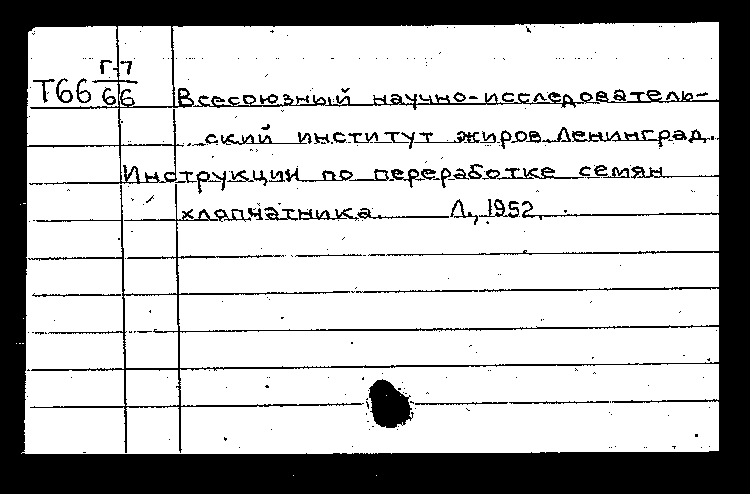 Г-7
Т66 66 Всесоюзный научно-исследователь-
ский институт жиров. Ленинград.
Инструкции по переработке семян
хлапчатника. Л., 1952.